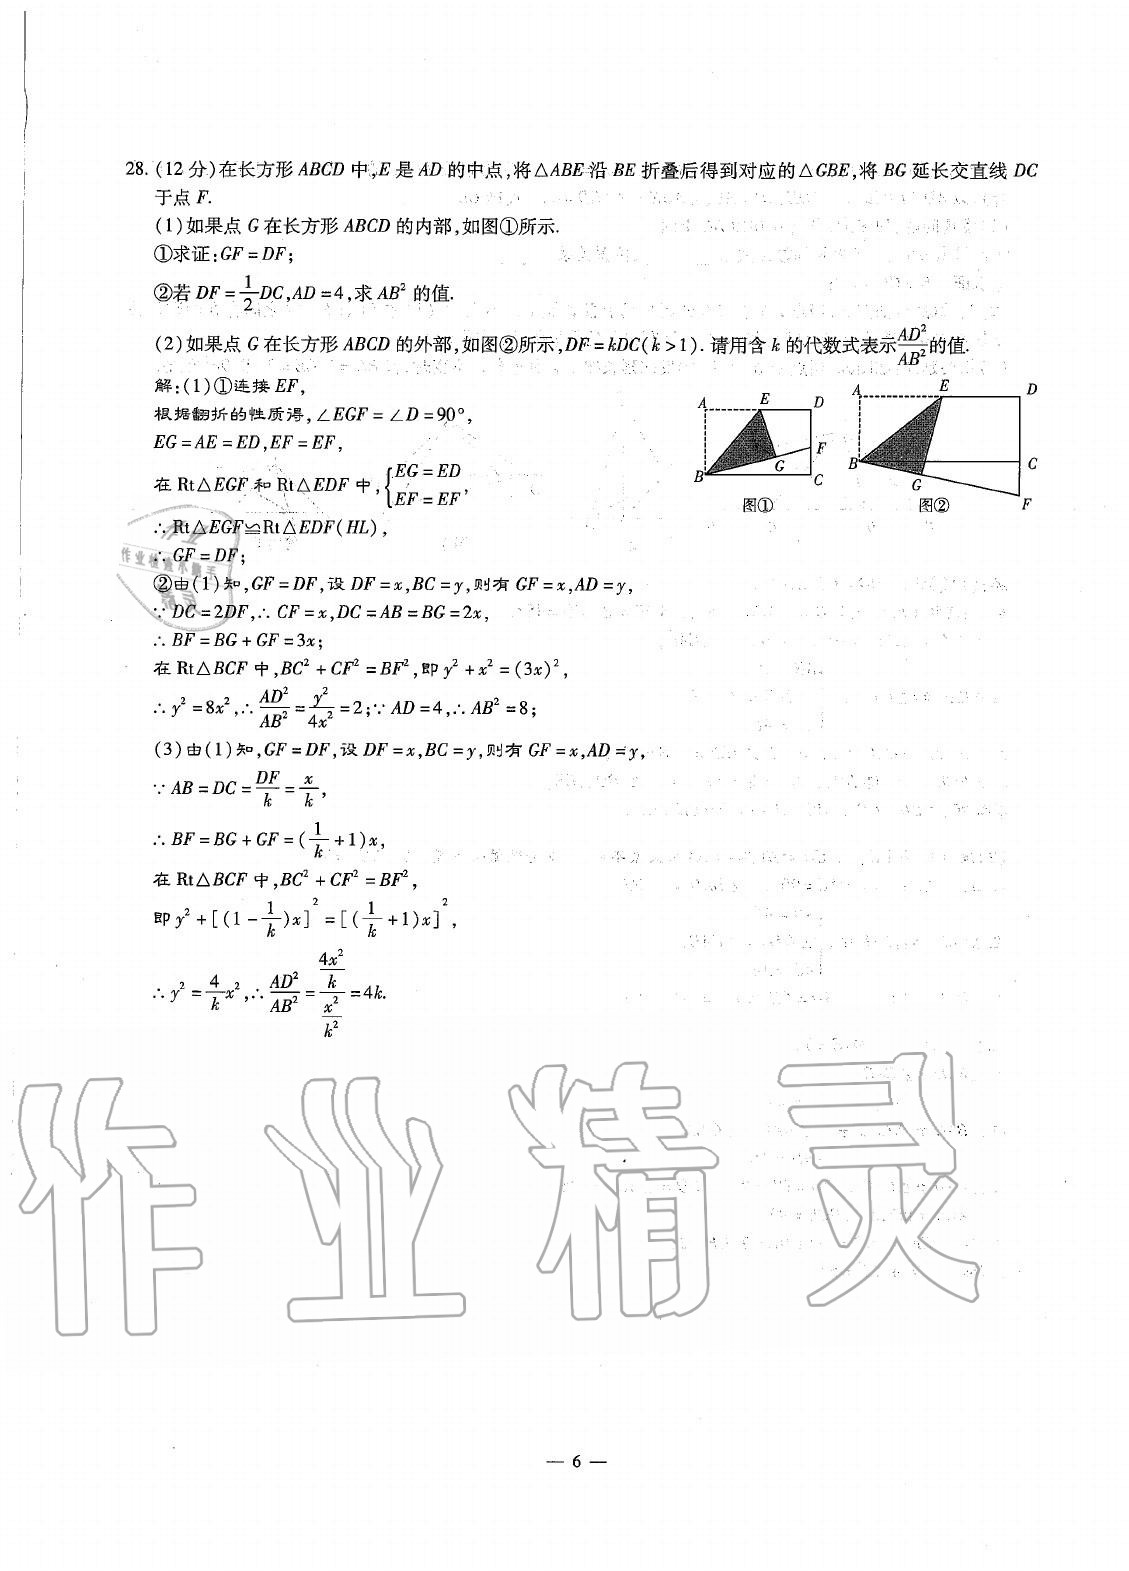 28.(12分)在长方形 ABCD 中,E 是 AD 的中点,将△ABE 沿 BE 折叠后得到对应的△GBE,将 BG 延长交直线 DC
于点 F.
(1)如果点 G 在长方形 ABCD 的内部,如图①所示.
①求证:GF=DF;
②若 DF=1/2DC,AD=4,求 AB²的值.
(2)如果点 G 在长方形 ABCD 的外部,如图②所示,DF=kDC(k>1).请用含 k 的代数式表示AD²/AB²的值.
解:(1)①连接 EF,
根据翻折的性质得,∠EGF=∠D=90°,
EG=AE=ED,EF=EF,
在 Rt△EGF 和 Rt△EDF 中,{EG=ED
EF=EF,
∴Rt△EGF≌Rt△EDF(HL),
∴GF=DF;
②由(1)知,GF=DF,设 DF=x,BC=y,则有 GF=x,AD=y,
∵DC=2DF,∴CF=x,DC=AB=BG=2x,
∴BF=BG+GF=3x;
在 Rt△BCF 中,BC²+CF²=BF²,即 y²+x²=(3x)²,
∴y²=8x²,∴AD²/AB²=y²/4x²=2;∵AD=4,∴AB²=8;
(3)由(1)知,GF=DF,设 DF=x,BC=y,则有 GF=x,AD=y,
∵AB=DC=DF/k=x/k,
∴BF=BG+GF=(1/k+1)x,
在 Rt△BCF 中,BC²+CF²=BF²,
即 y²+[(1-1/k)x]²=[(1/k+1)x]²,
∴y²=4/k x²,∴AD²/AB²=(4x²/k)/(x²/k²)=4k.
A E D
F
B G C
图①
A E D
B C
G
F
图②
作业
作业检查小能手
精灵
作业精灵
— 6 —